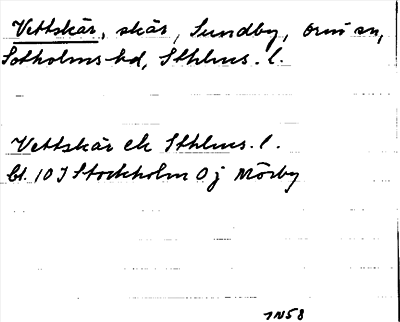 Vettskär, skär, Sundby, Ornö sn,
Sotholms hd, Sthlms. l.
Vettskär ek Sthlms. l.
bl. 10 J Stockholm O j Mörby
1N58